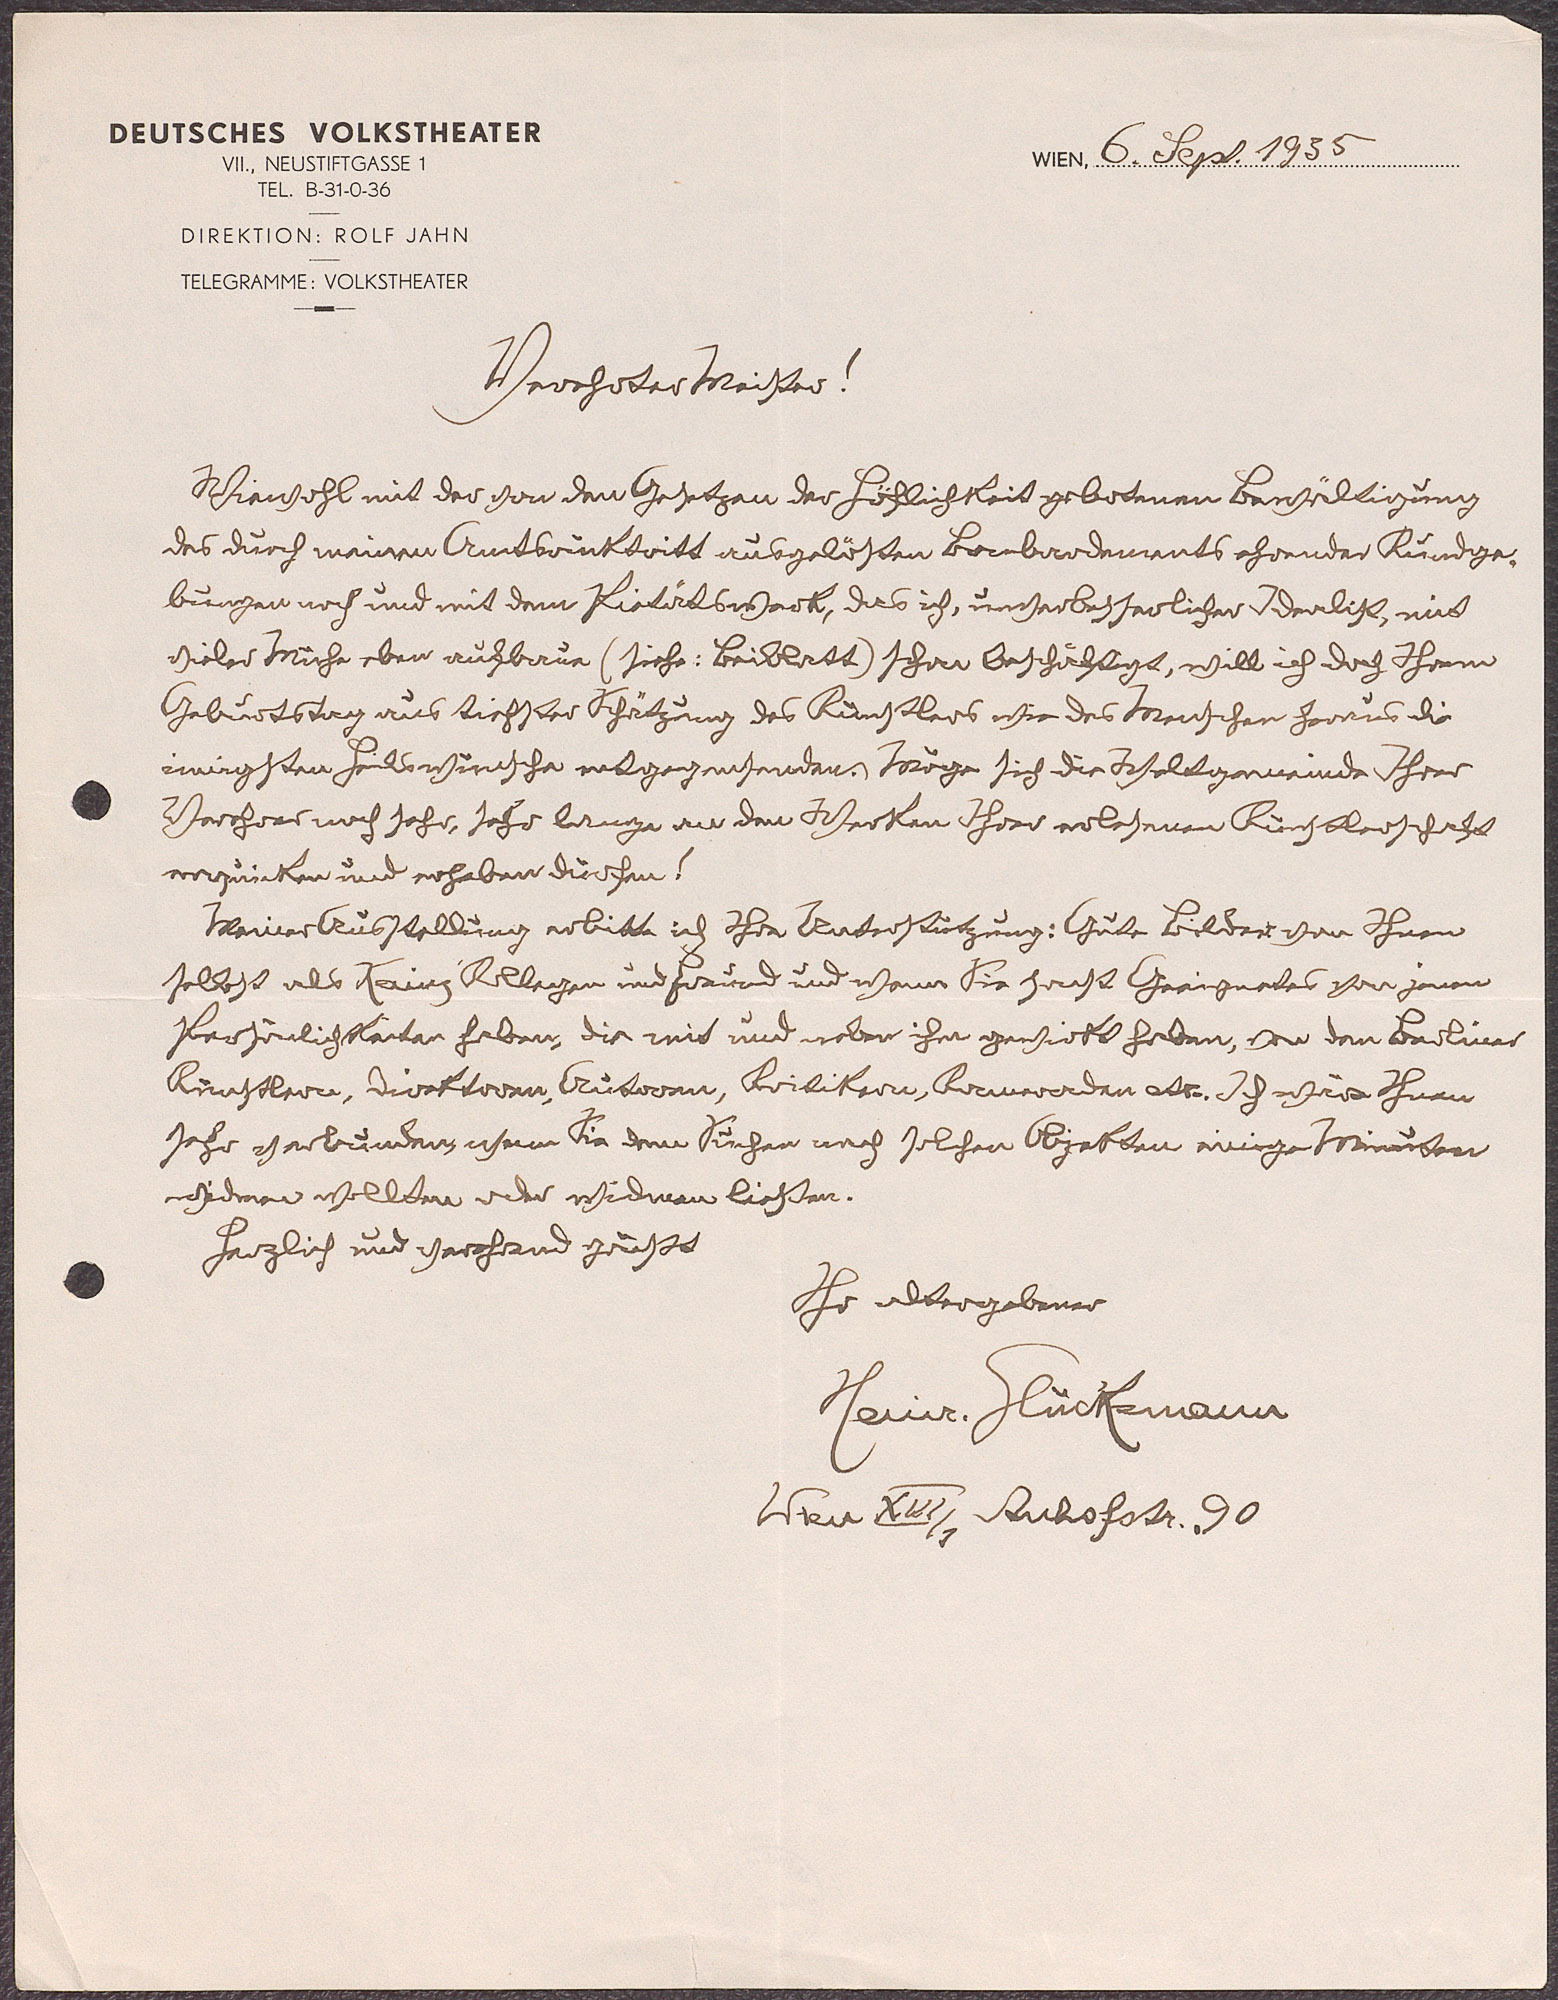 DEUTSCHES VOLKSTHEATER
VII., NEUSTIFTGASSE 1
TEL. B-31-0-36
DIREKTION: ROLF JAHN
TELEGRAMME: VOLKSTHEATER
WIEN, 6. Sept. 1935
Verehrter Meister!
Wiewohl mit der von den Gesetzen der Höflichkeit gebotenen Bewältigung
des durch meinen Amtsrücktritt ausgelösten Bombardements ehrender Kundge-
bungen noch und mit dem Pietätswerk, das ich, unverbesserlicher Idealist, mit
vieler Mühe eben aufbaue (siehe: Beiblatt) schon beschäftigt, will ich doch Ihrem
Geburtstag aus tiefster Schätzung des Künstlers wie des Menschen heraus die
innigsten Heilswünsche entgegensenden. Möge sich die Weltgemeinde Ihrer
Verehrer noch sehr, sehr lange an den Werken Ihrer erlesenen Künstlerschaft
erquicken und erheben dürfen!
Meiner Ausstellung erbitte ich Ihre Unterstützung: Gute Bilder von Ihnen
selbst als Kainz' Kollegen und Freund und wenn Sie sonst Geeignetes von jenen
Persönlichkeiten haben, die mit und neben ihm gewirkt haben, von den Berliner
Künstlern, Direktoren, Autoren, Kritikern, Kameraden etc. Ich wäre Ihnen
sehr verbunden, wenn Sie dem Suchen nach solchen Objekten einige Minuten
widmen wollten oder widmen ließen.
Herzlich und verehrend grüßt
Ihr altergebener
Heinr. Glücksmann
Wien XIII/, Auhofstr. 90